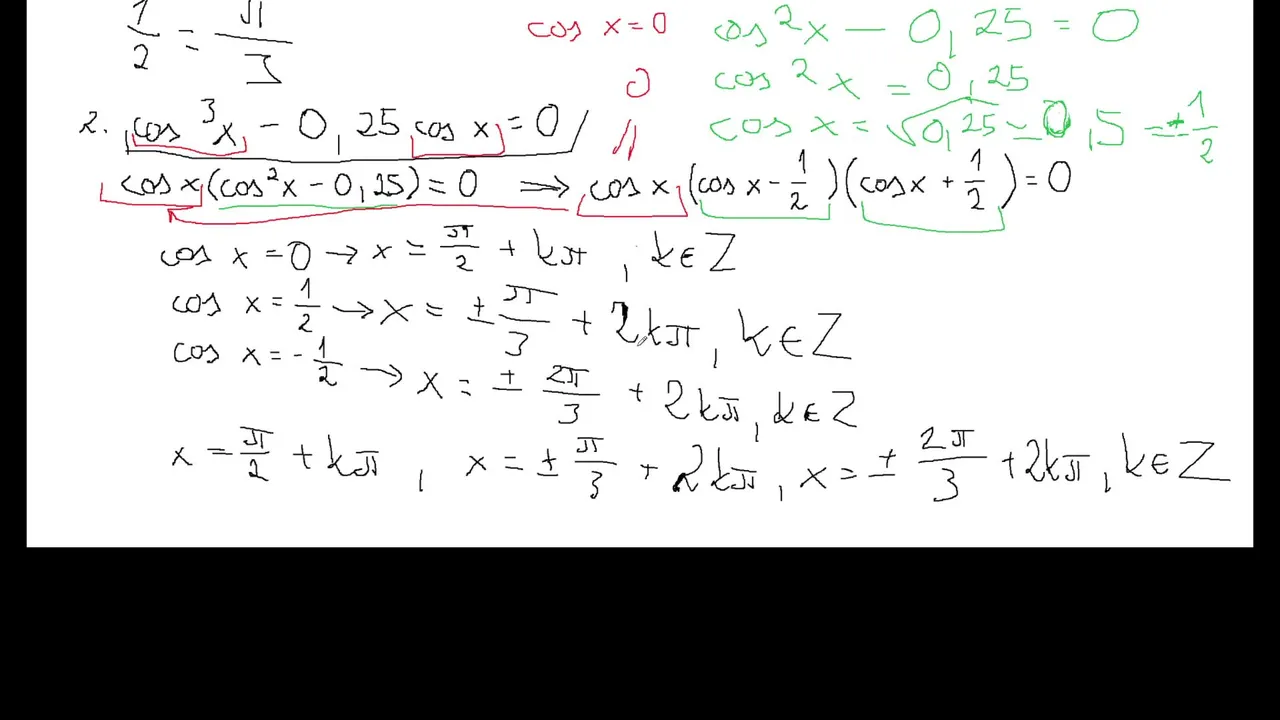 1/2 = π/3
cos x = 0
0
cos²x − 0,25 = 0
cos²x = 0,25
cos x = √0,25 = 0,5 = ± 1/2
2. cos³x − 0,25 cos x = 0
cos x (cos²x − 0,25) = 0 ⇒ cos x (cos x − 1/2)(cos x + 1/2) = 0
cos x = 0 → x = π/2 + kπ, k ∈ Z
cos x = 1/2 → x = ± π/3 + 2kπ, k ∈ Z
cos x = − 1/2 → x = ± 2π/3 + 2kπ, k ∈ Z
x = π/2 + kπ, x = ± π/3 + 2kπ, x = ± 2π/3 + 2kπ, k ∈ Z